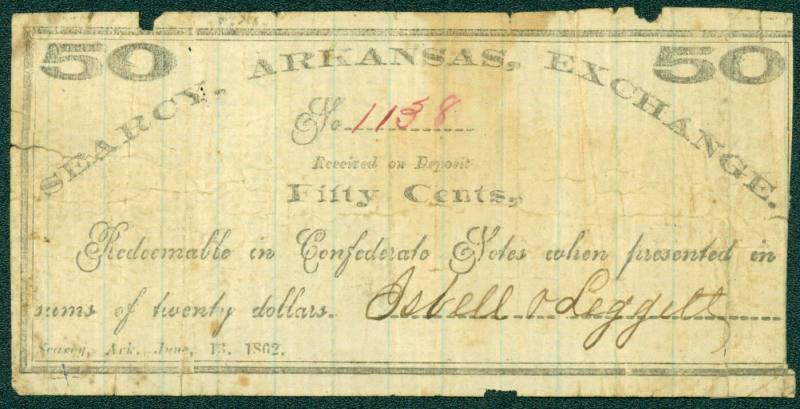 50 50
SEARCY, ARKANSAS, EXCHANGE.
No 1138
Received on Deposit
Fifty Cents,
Redeemable in Confederate Notes when presented in
sums of twenty dollars. Isbell & Leggett
Searcy, Ark. June, 13, 1862.